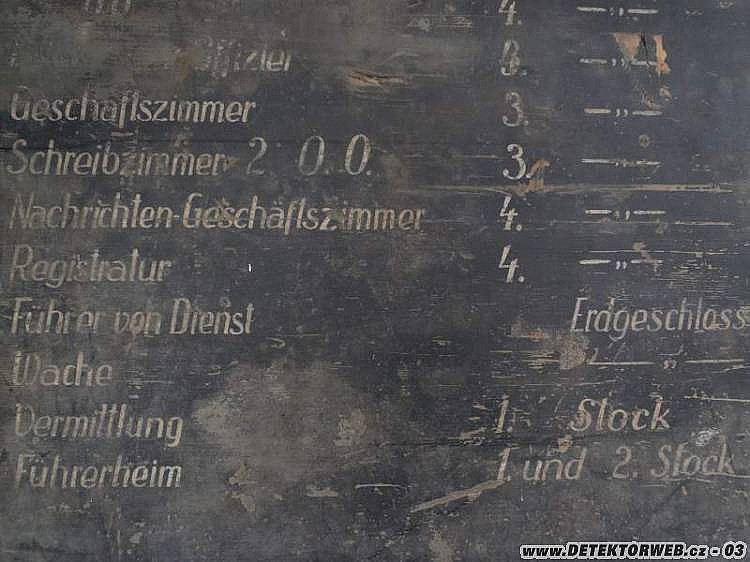 4. —„—
Offizier 3. —„—
Geschäftszimmer 3. —„—
Schreibzimmer 2. O.O. 3. —„—
Nachrichten-Geschäftszimmer 4. —„—
Registratur 4. —„—
Führer von Dienst Erdgeschloss
Wache —„—
Vermittlung 1. Stock
Führerheim 1. und 2. Stock
www.DETEKTORWEB.cz - 03